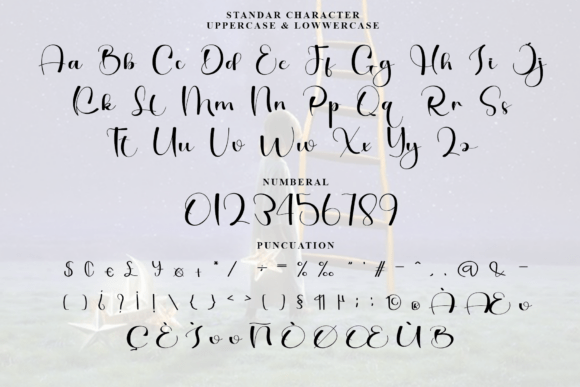 STANDAR CHARACTER
UPPERCASE & LOWWERCASE
Aa Bb Cc Dd Ee Ff Gg Hh Ii Jj
Kk Ll Mm Nn Pp Qq Rr Ss
Tt Uu Vv Ww Xx Yy Zz
NUMBERAL
0123456789
PUNCUATION
$ € £ ¥ + * / ÷ = % ‰ " ' # - ^ . . @ & -
( ) ¿ ? ¡ ! \ { } < > ( ) § ¶ ; : © À Æ
Ç È Ñ Ò Ø Œ Ù